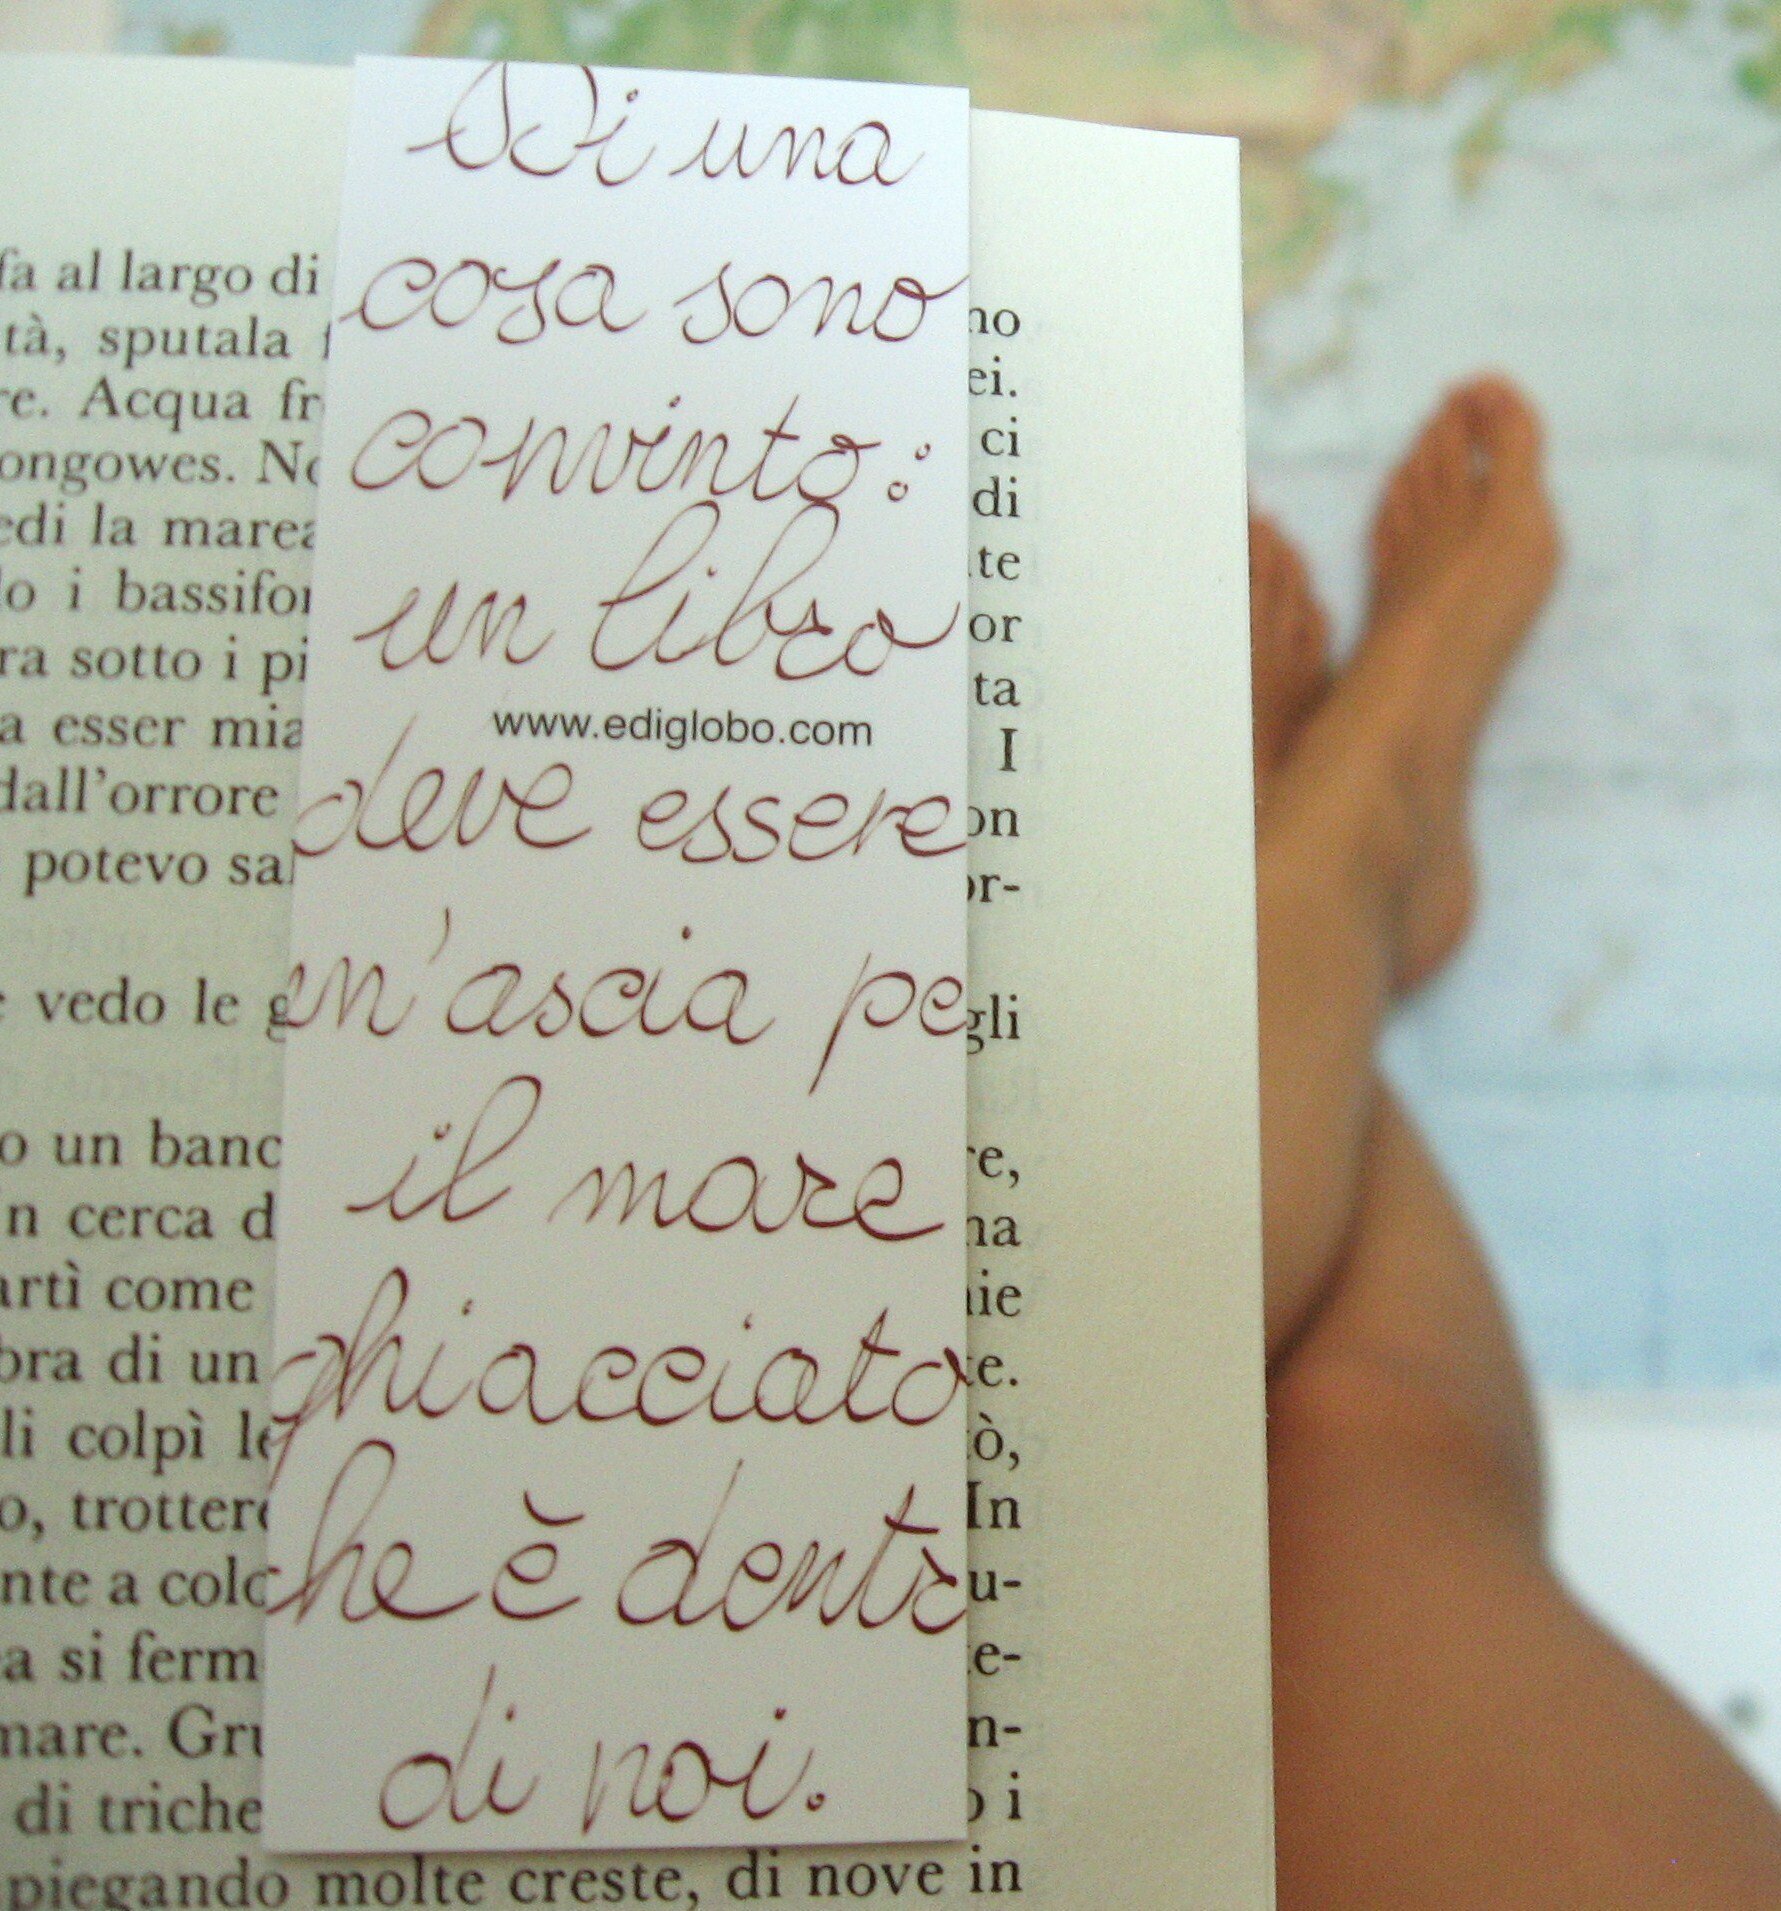 Di una
cosa sono
convinto:
un libro
www.ediglobo.com
deve essere
un'ascia pe
il mare
ghiacciato
che è dentr
di noi.
fa al largo di
no
tà, sputala
ei.
re. Acqua fr
ci
ongowes. No
di
edi la marea
te
lo i bassifon
or
ra sotto i pi
ta
a esser mia
I
dall'orrore
on
potevo sal
or-
vedo le g
gli
o un banc
re,
n cerca d
na
artì come
nie
bra di un
te.
li colpì le
tò,
o, trottere
In
nte a colo
u-
a si ferm
te-
mare. Gru
n-
di triche
o i
piegando molte creste, di nove in